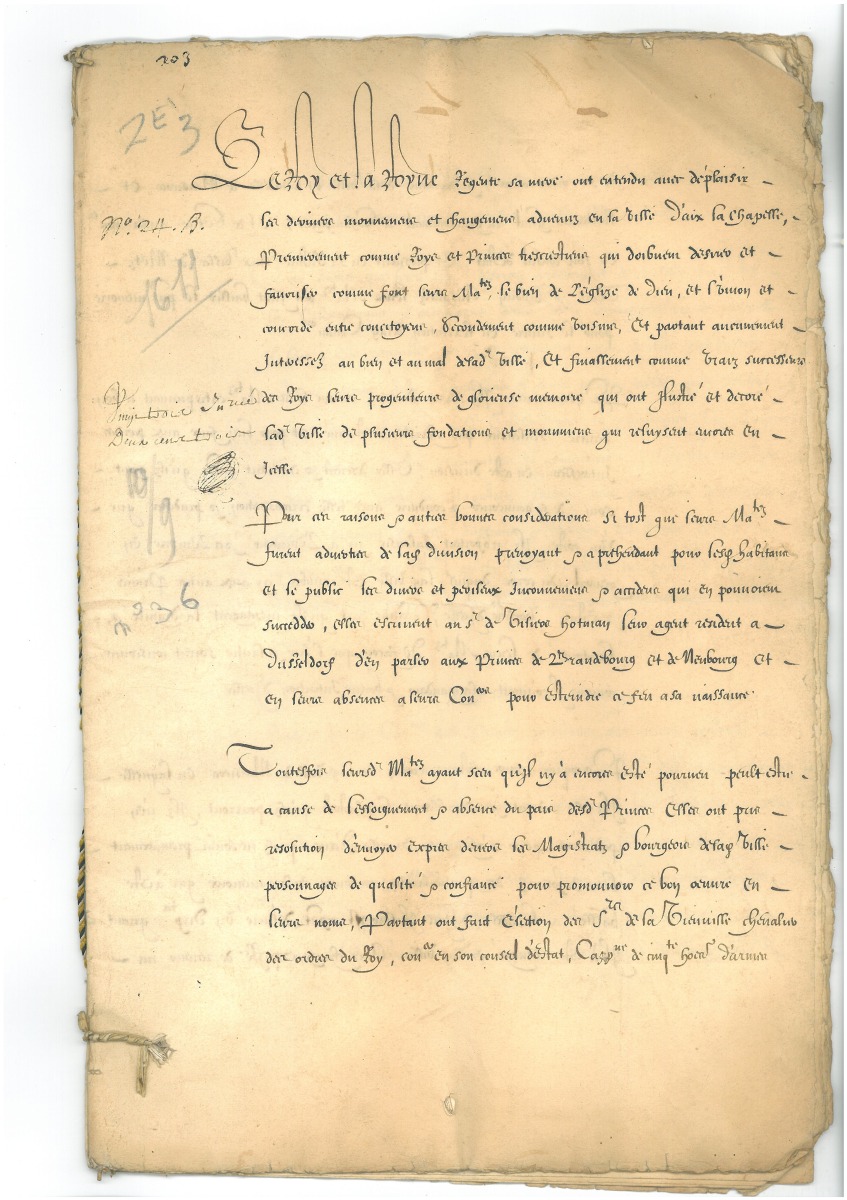 203
2E3
Le Roy et la Royne Regente sa mere ont entendu avec déplaisir
N.º 24. B.
les derniers mouvemens et changemens advenuz en la Ville d'aix la Chapelle,
Premierement comme Roys et Princes treschrestiens qui doibvent desirer et
favoriser comme font leurs Ma.tez, le bien de L'églize de Dieu, et l'Vnion et
1611
concorde entre concitoyens, Secondement comme Voisins, Et partant aucunement
Interessez au bien et au mal de lad.e Ville, Et finallement comme Vraiz successeurs
des Roys leurs progeniteurs de glorieuse memoire qui ont Illustré et decoré
Deux cent trois
lad.e Ville de plusieurs fondations et monumens qui reluysent encores en
Icelle
Pour ces raisons & autres bonnes considerations si tost que leurs Ma.tez
10/9
furent adverties de lad. division prevoyant & aprehendant pour lesd. habitans
et le public les divers et perileux Inconveniens & accidens qui en pouvoient
nº 36
succedder, elles escrivent au s.r de Villiers hotman leur agent resident a
Dusseldorf d'en parler aux Princes de Brandebourg et de Neubourg et
en leurs absences a leurs Con.ers pour esteindre ce feu a sa naissance
Toutesfois leursd. Ma.tez ayant sceu qu'Il n'y à encores esté pourveu peult estre
a cause de l'esloignement & absence du pais desd. Princes Elles ont pris
resolution d'envoyer expres devers les Magistratz & bourgeois de lad. Ville
personnages de qualité & confiance pour promouvoir ce bon œuvre en
leurs noms, Partant ont fait élection des S.rs de la Vieuville chevalier
des ordres du Roy, con.er en son conseil d'estat, Cap.ne de cinq.te hoes d'armes